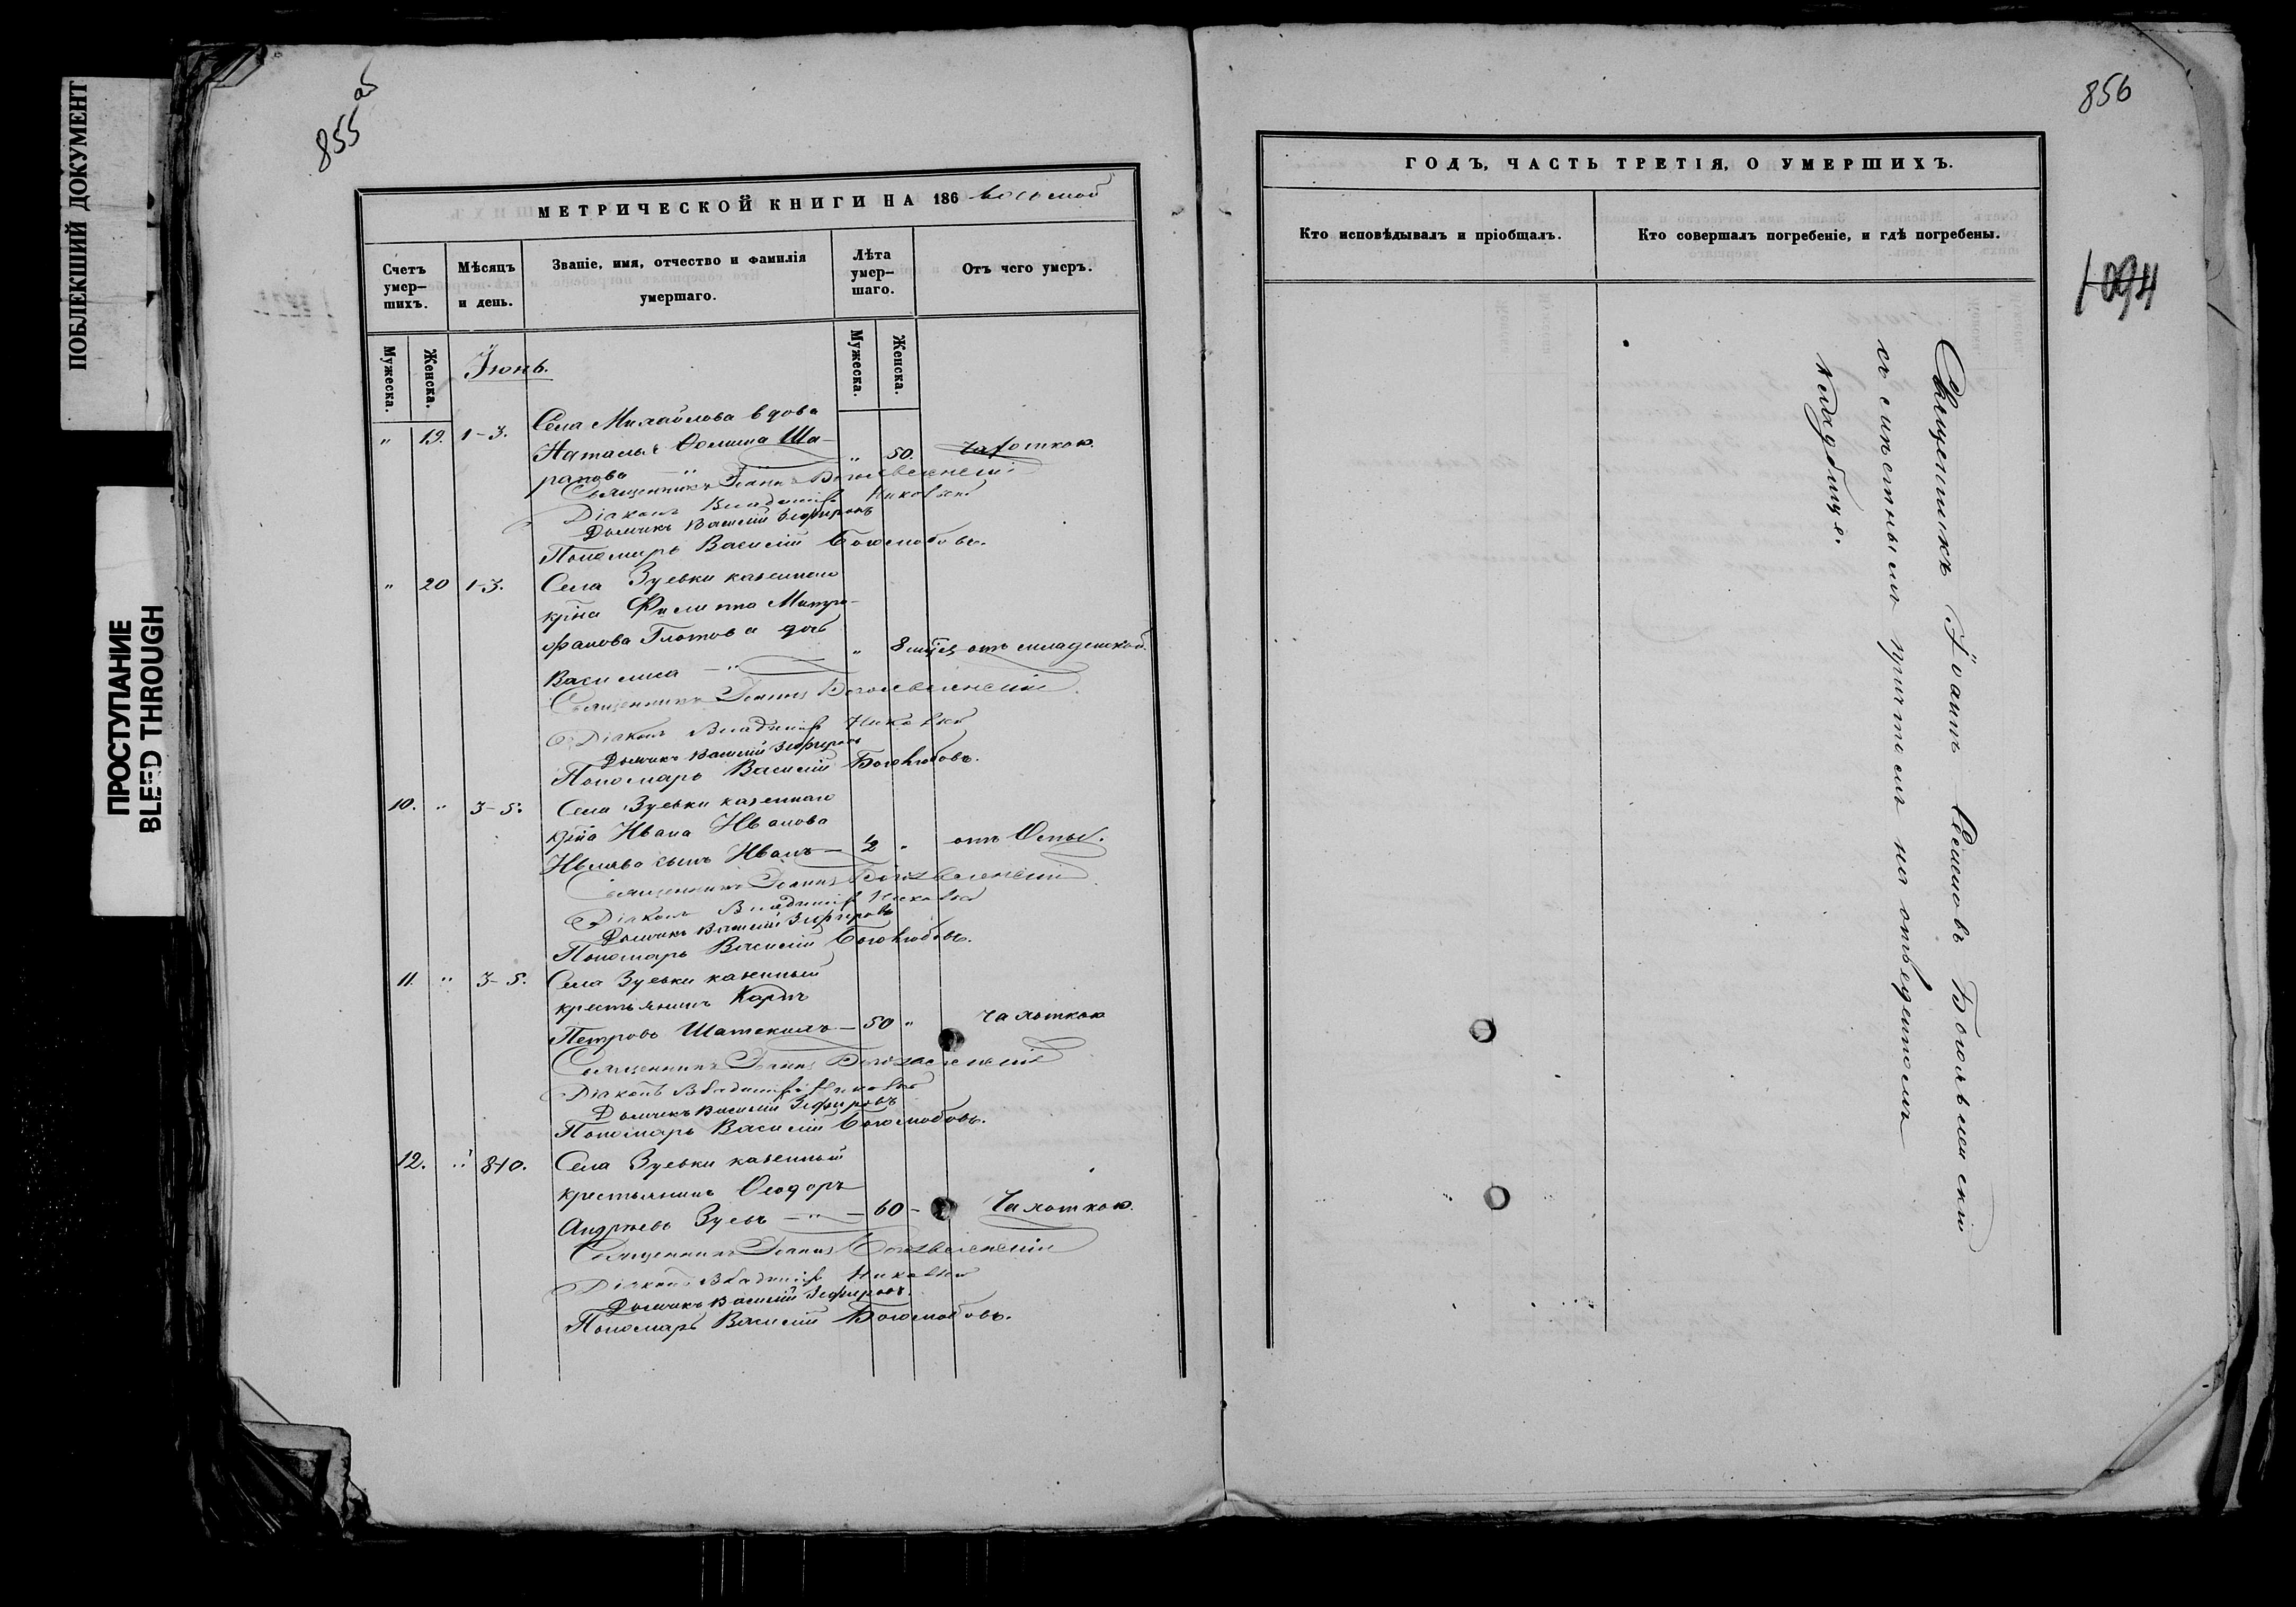 ПОБЛЕКШИЙ ДОКУМЕНТ
ПРОСТУПАНИЕ
BLEED THROUGH
855 об
МЕТРИЧЕСКОЙ КНИГИ НА 186 восьмой
Счетъ умер-шихъ.
Мѣсяцъ и день.
Званіе, имя, отчество и фамилія умершаго.
Лѣта умер-шаго.
Отъ чего умеръ.
Мужеска.
Женска.
Мужеска.
Женска.
Іюнь.
" 19. 1-3. Села Михайлова вдова
Наталья Ѳомина Ша- " 50. чахоткою.
рапова
Священникъ Іоаннъ Богоявленскій
Діаконъ Владиміръ
Дьячикъ Василій Зефировъ
Пономарь Василій Боголюбовъ.
" 20 1-3. Села Зуевки казеннаго
крⷭ҇на Филиппа Митро-
фанова Глотова дочь
Василиса " 8 мцⷭ҇ъ отъ младенской.
Священникъ Іоаннъ Богоявленскій
Діаконъ Владиміръ
Дьячикъ Василій Зефировъ
Пономарь Василій Боголюбовъ.
10. " 3-5. Села Зуевки казеннаго
крⷭ҇на Ивана Иванова
сынъ Иванъ — ½ " отъ Оспы.
Священникъ Іоаннъ Богоявленскій
Діаконъ Владиміръ
Дьячикъ Василій Зефировъ
Пономарь Василій Боголюбовъ.
11. " 3-5. Села Зуевки казенный
крестьянинъ Карпъ
Петровъ — 50 " чахоткою
Священникъ Іоаннъ Богоявленскій
Діаконъ Владиміръ
Дьячикъ Василій Зефировъ
Пономарь Василій Боголюбовъ.
12. " 8-10. Села Зуевки казенный
крестьянинъ Ѳеодоръ
Андреевъ Зуевъ — " — 60 - Чахоткою.
Священникъ Іоаннъ Богоявленскій
Діаконъ Владиміръ
Дьячикъ Василій Зефировъ.
Пономарь Василій Боголюбовъ.
856
ГОДЪ, ЧАСТЬ ТРЕТІЯ, О УМЕРШИХЪ.
Кто исповѣдывалъ и пріобщалъ.
Кто совершалъ погребеніе, и гдѣ погребены.
1094
Священникъ Іоаннъ Семеновъ Богоявленскій
съ причтомъ на отведенномъ
кладбищѣ.